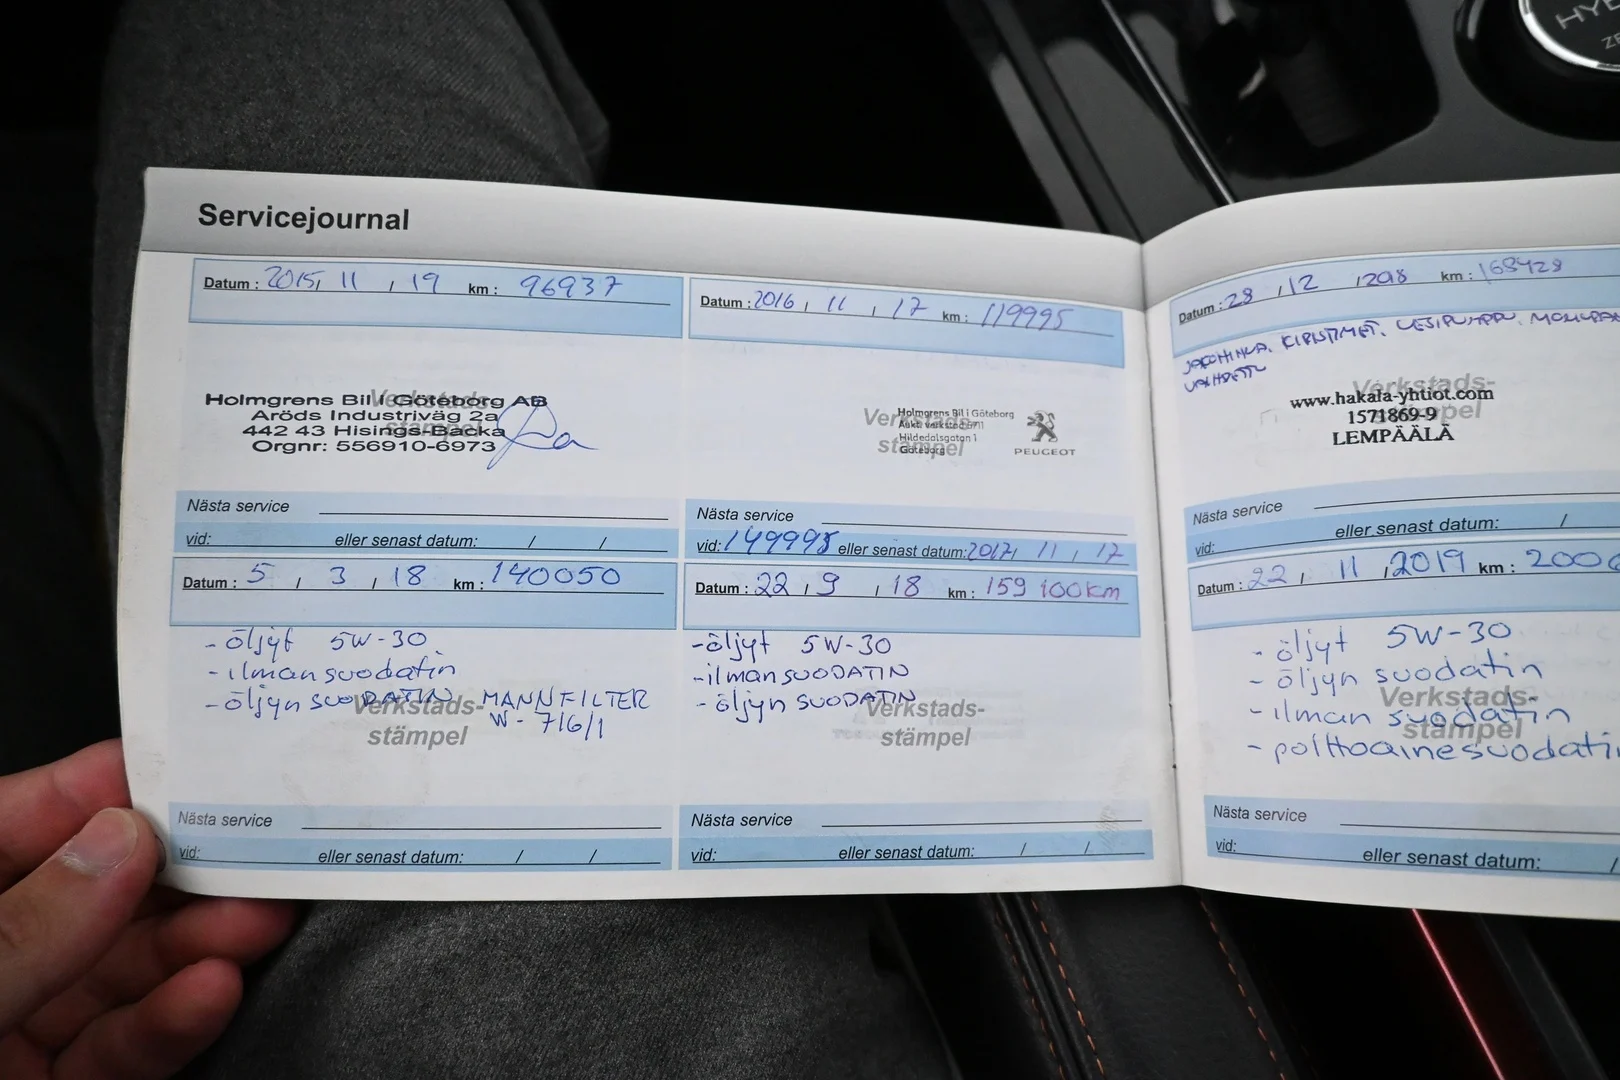 HYB
Servicejournal
Datum : 2015, 11 , 19 km : 96937
Verkstads-
stämpel
Holmgrens Bil i Göteborg AB
Aröds Industriväg 2a
442 43 Hisings-Backa
Orgnr: 556910-6973
Nästa service
vid: eller senast datum: / /
Datum : 2016 , 11 , 17 km : 119995
Verkstads-
stämpel
Holmgrens Bil i Göteborg
Hildedalsgatan 1
Göteborg
PEUGEOT
Nästa service
vid: 149995 eller senast datum: 2017, 11 , 17
Datum : 5 , 3 , 18 km : 140050
- öljyt 5W-30
- ilmansuodatin
- öljyn SUODATIN - MANNFILTER
W - 716/1
Verkstads-
stämpel
Nästa service
vid: eller senast datum: / /
Datum : 22 , 9 , 18 km : 159 100km
- öljyt 5W-30
- ilmanSUODATIN
- öljyn SUODATIN
Verkstads-
stämpel
Nästa service
vid: eller senast datum: / /
Datum : 28 , 12 , 2018 km : 168428
JAKOHIHNA, KIRISTIMET, VESIPUMPPU,
VAIHDETTU
Verkstads-
stämpel
www.hakala-yhtiot.com
1571869-9
LEMPÄÄLÄ
Nästa service
vid: eller senast datum: /
Datum : 22 , 11 , 2019 km : 200
- öljyt 5W-30
- öljyn suodatin
- ilman suodatin
- polttoainesuodati
Verkstads-
stämpel
Nästa service
vid: eller senast datum: /